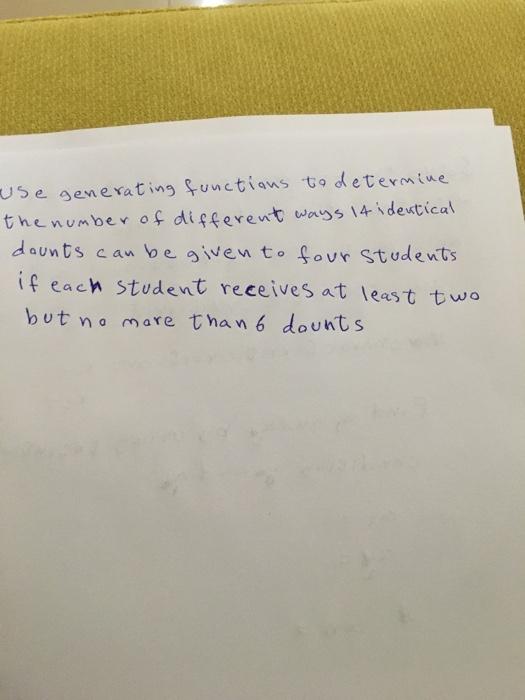 Use generating functions to determine
the number of different ways 14 identical
dounts can be given to four students
if each student receives at least two
but no more than 6 dounts